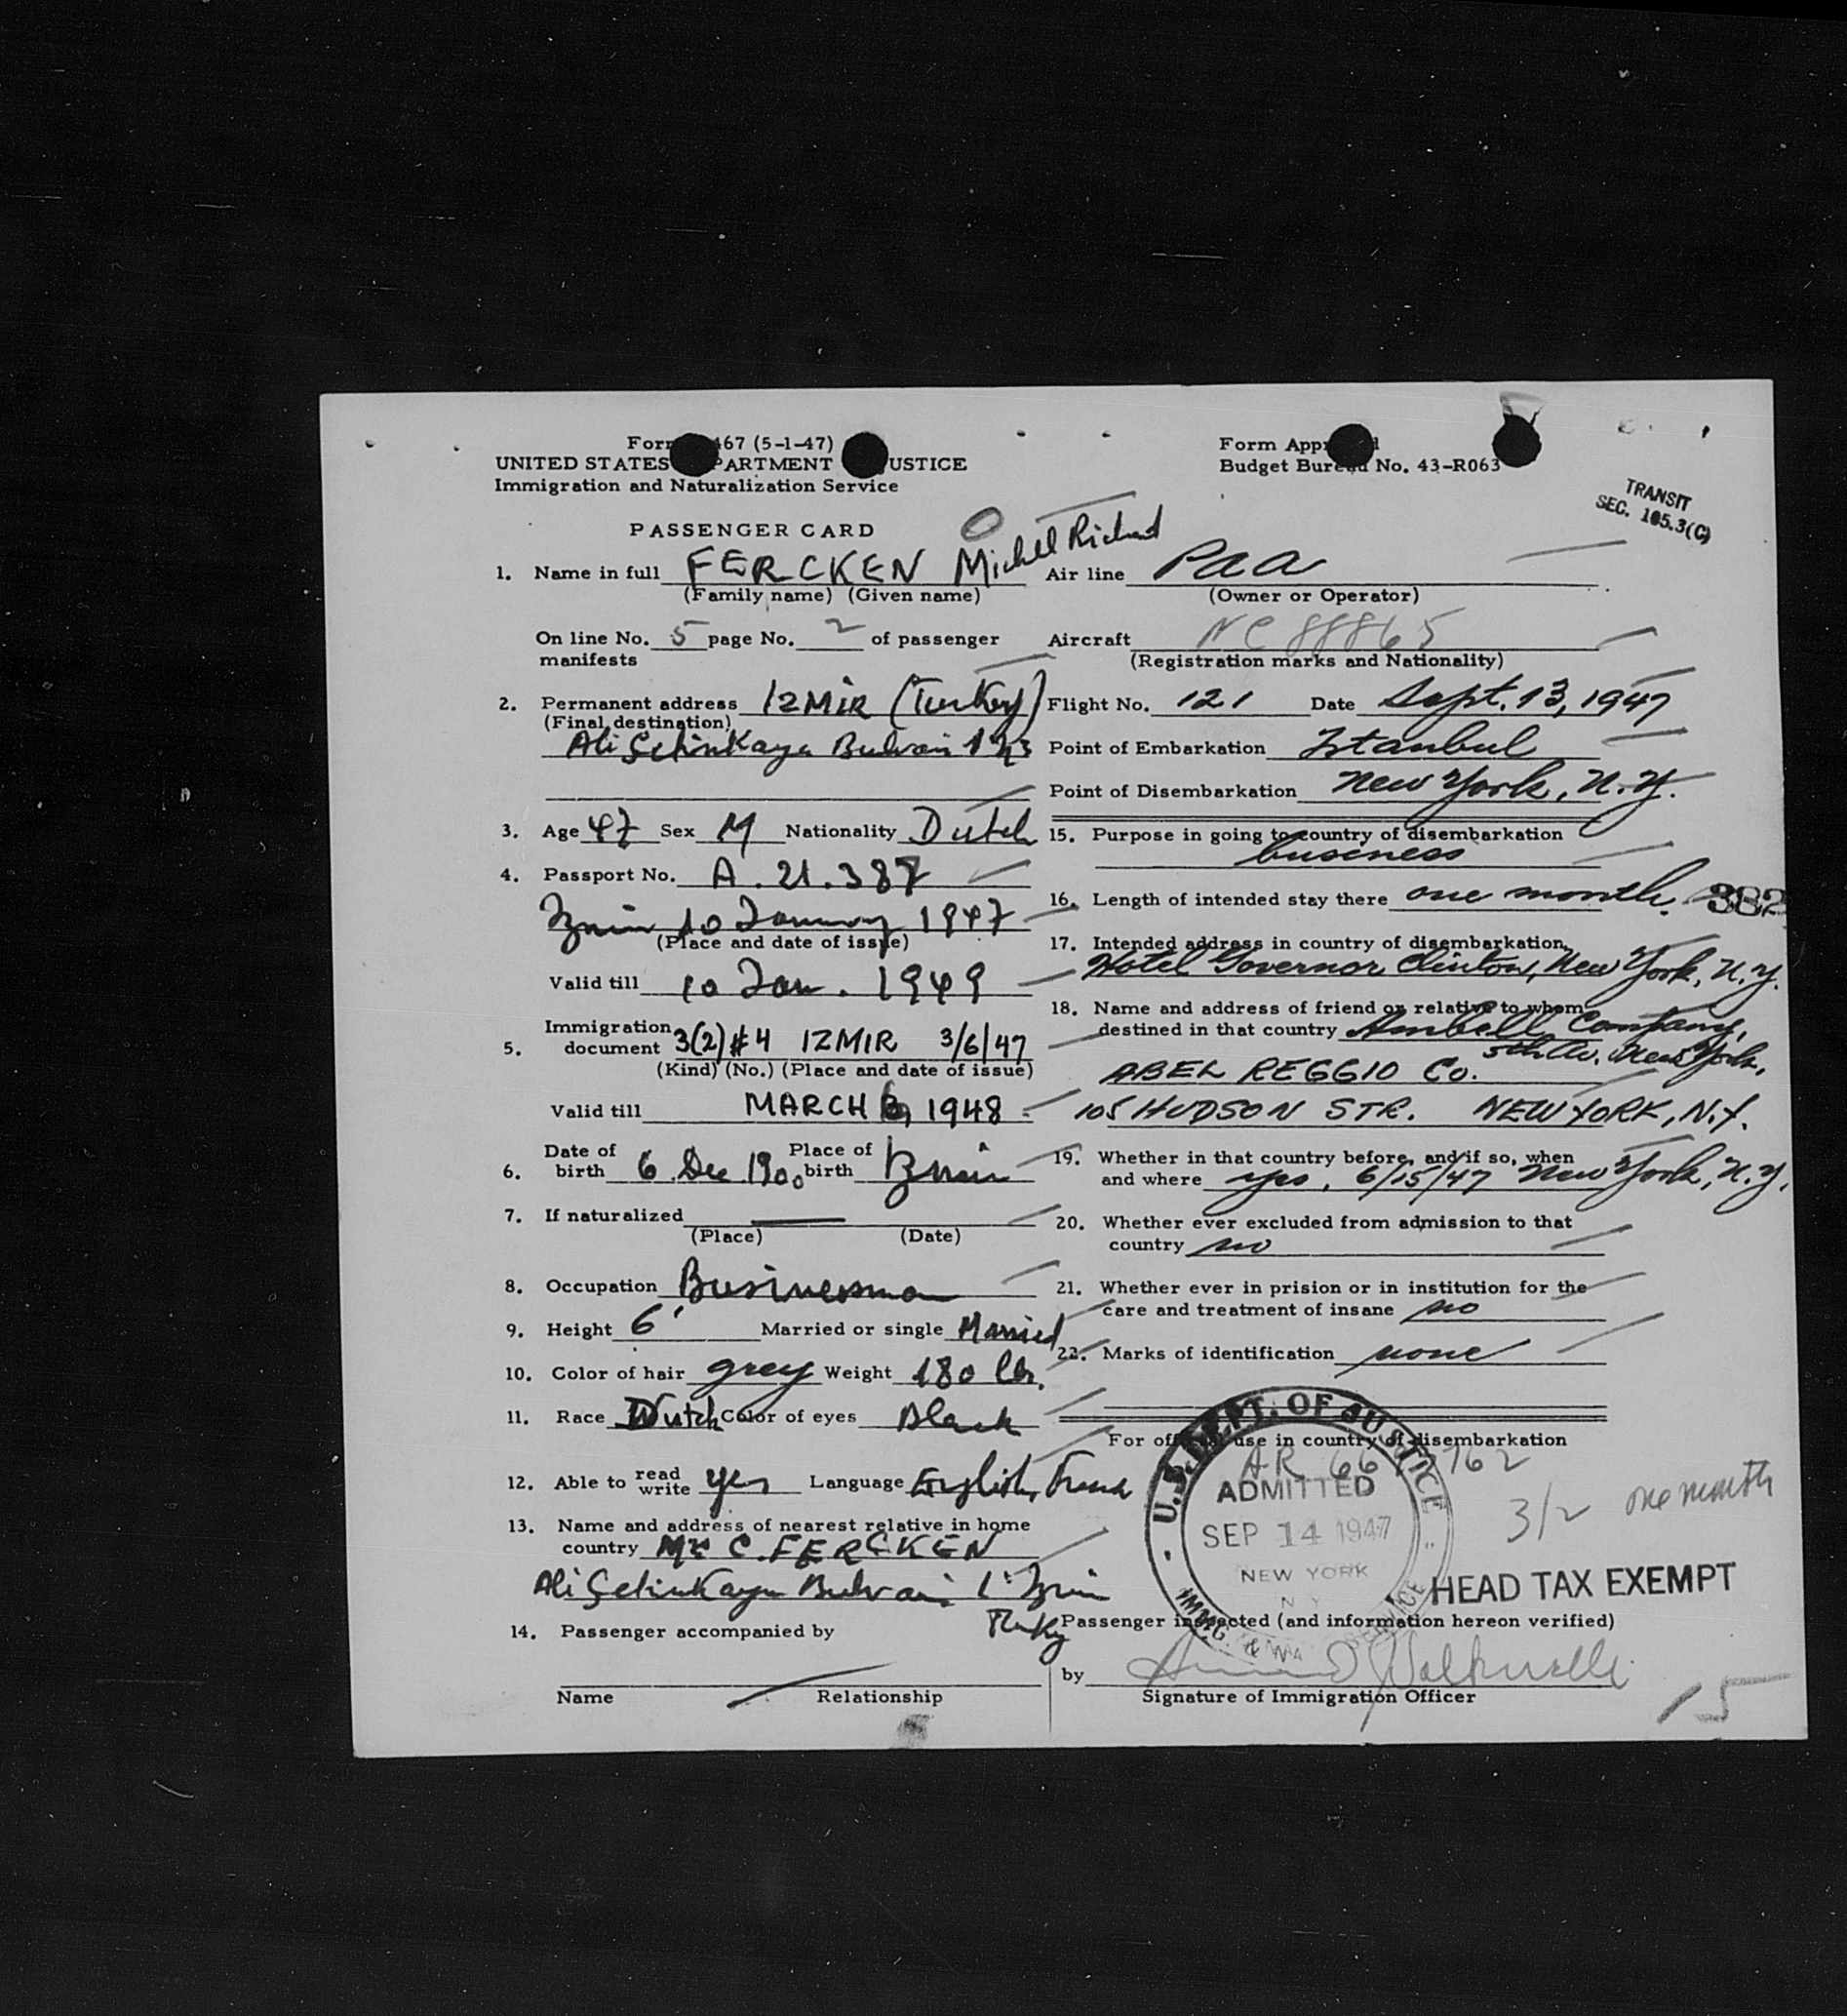 Form 467 (5-1-47)
UNITED STATES DEPARTMENT OF JUSTICE
Immigration and Naturalization Service
Form Approved
Budget Bureau No. 43-R063
TRANSIT
SEC. 105.3(C)
PASSENGER CARD
1. Name in full FERCKEN Michel Richard
(Family name) (Given name)
On line No. 5 page No. 2 of passenger
manifests
2. Permanent address IZMIR (Turkey)
(Final destination)
Ali Çetinkaya Bulvari
3. Age 47 Sex M Nationality Dutch
4. Passport No. A. 21.387
Izmir 10 January 1947
(Place and date of issue)
Valid till 10 Jan. 1949
Immigration
5. document 3(2) #4 IZMIR 3/6/47
(Kind) (No.) (Place and date of issue)
Valid till MARCH 1948
Date of Place of
6. birth 6. Dec. 1900 birth Izmir
7. If naturalized —
(Place) (Date)
8. Occupation Businessman
9. Height 6' Married or single Married
10. Color of hair grey Weight 180 lbs.
11. Race Dutch Color of eyes Black
12. Able to read write yes Language English, French
13. Name and address of nearest relative in home
country C. FERCKEN
Ali Çetinkaya Bulvari Izmir
Turkey
14. Passenger accompanied by
Name Relationship
Air line PAA
(Owner or Operator)
Aircraft NC 88865
(Registration marks and Nationality)
Flight No. 121 Date Sept. 13, 1947
Point of Embarkation Istanbul
Point of Disembarkation New York, N.Y.
15. Purpose in going to country of disembarkation
business
16. Length of intended stay there one month. 382
17. Intended address in country of disembarkation
Hotel Governor Clinton, New York, N.Y.
18. Name and address of friend or relative to whom
destined in that country Company,
5th Av. New York,
ABEL REGGIO Co.
105 HUDSON STR. NEW YORK, N.Y.
19. Whether in that country before, and if so, when
and where yes, 6/15/47 New York, N.Y.
20. Whether ever excluded from admission to that
country no
21. Whether ever in prision or in institution for the
care and treatment of insane no
22. Marks of identification none
For official use in country of disembarkation
U.S. DEPT. OF JUSTICE
ADMITTED
SEP 14 1947
NEW YORK
N Y
3/2 one month
HEAD TAX EXEMPT
Passenger inspected (and information hereon verified)
by
Signature of Immigration Officer
15